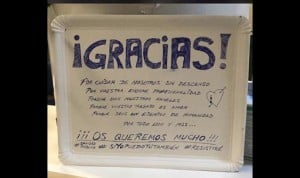 ¡GRACIAS!
POR CUIDAR DE NOSOTROS SIN DESCANSO
POR VUESTRA ENORME PROFESIONALIDAD
PORQUE SOIS NUESTROS ANGELES
PORQUE VUESTRO TRABAJO ES AMOR
PORQUE SOIS UN EJEMPLO DE HUMANIDAD
POR TODO ESO Y MAS...
¡¡¡OS QUEREMOS MUCHO!!!
#SIYOPUEDOTUTAMBIÉN #RESISTIRÉ